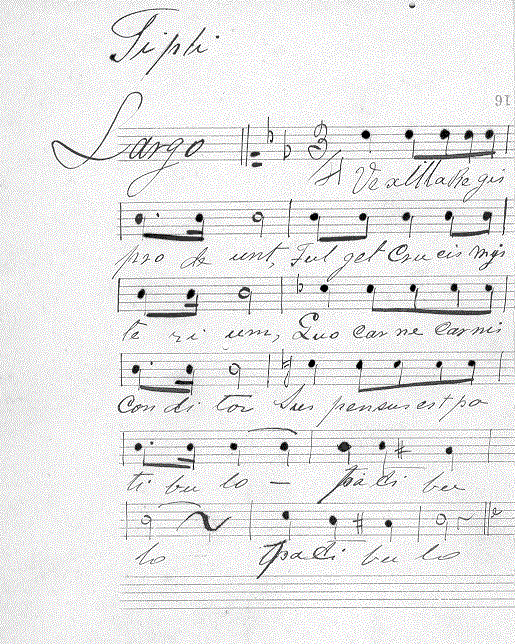 Tipli
16
Largo 3/4
Vexilla Regis
pro de unt, Ful get Cru cis mys
te ri um, Quo car ne carnis
Con di tor Sus pensus est pa
ti bu lo — padi bu
lo padi bu lo